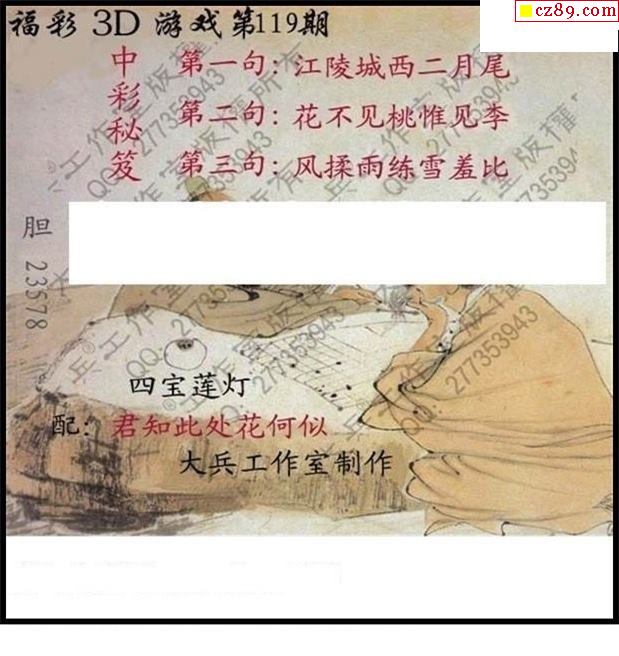 福彩 3D 游戏第119期
cz89.com
中彩秘笈
第一句: 江陵城西二月尾
第二句: 花不见桃惟见李
第三句: 风揉雨练雪羞比
胆 23578
四宝莲灯
配: 君知此处花何似
大兵工作室制作
大兵工作室版權所有
QQ: 277353943